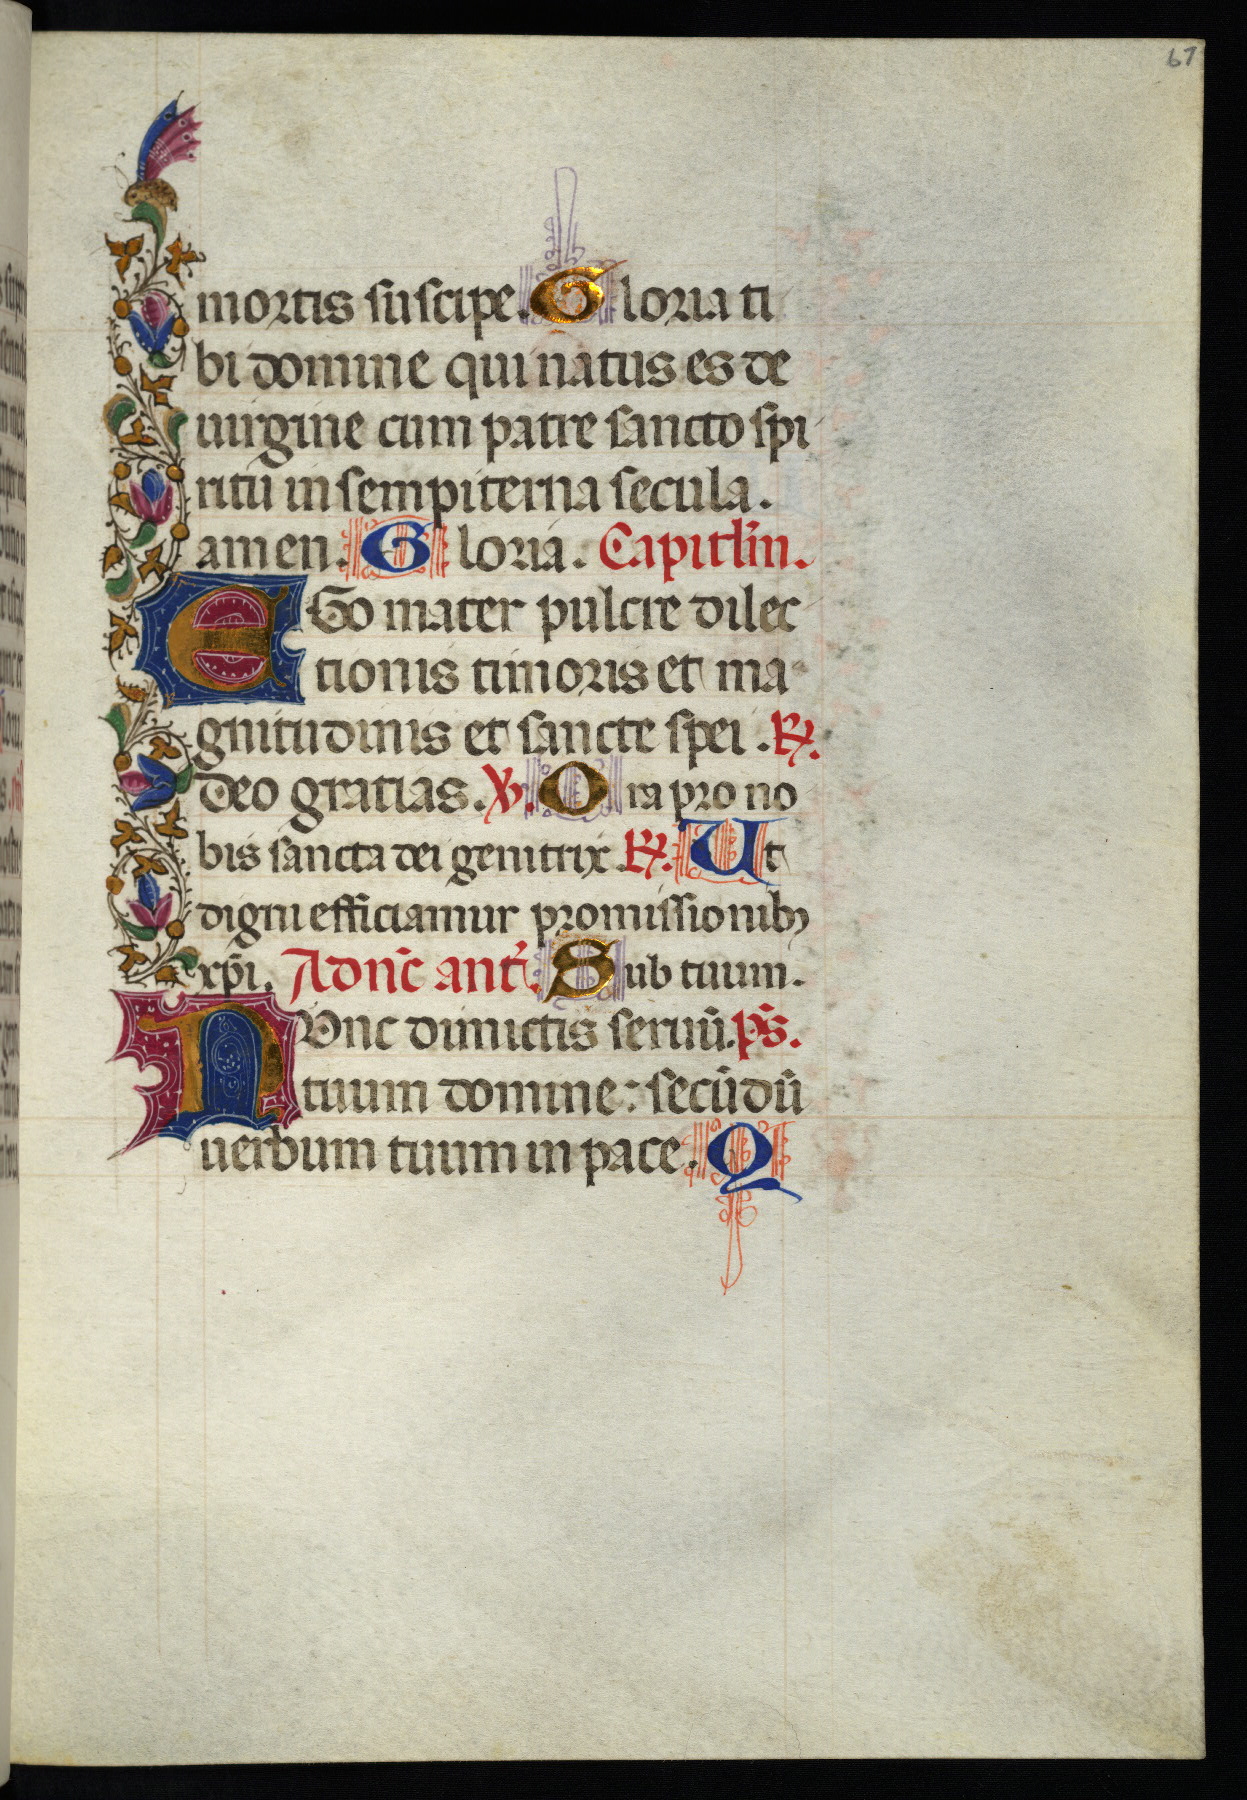 67
mortis suscipe. Gloria ti
bi domine qui natus es de
uirgine cum patre sancto spi
ritu in sempiterna secula.
amen. Gloria. Capitl'm.
EGo mater pulcre dilec
tionis timoris et ma
gnitudinis et sancte spei. ℟.
deo gratias. ℣. Ora pro no
bis sancta dei genitrix ℟. Ut
digni efficiamur promissionibꝫ
xp̄i. Ad nūc ant̄. Sub tuum.
NUnc dimictis seruū. ps̄.
tuum domine: secūdū
uerbum tuum in pace. Q